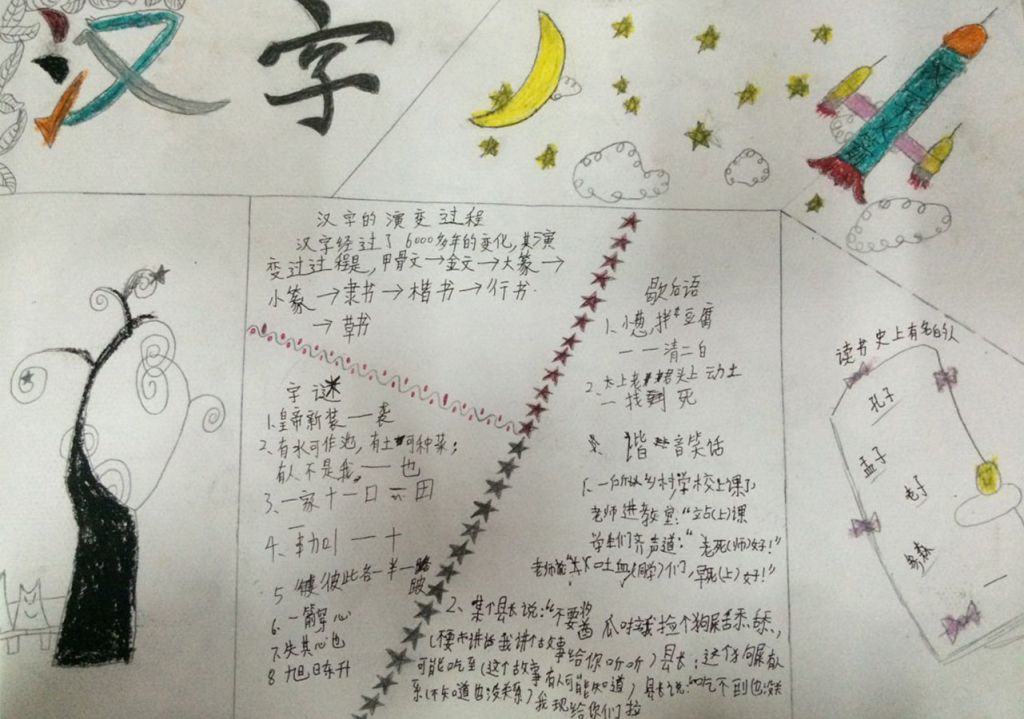 汉字
汉字的演变过程
汉字经过了6000多年的变化,其演
变过过程是,甲骨文→金文→大篆→
小篆→隶书→楷书→行书
→草书
字谜
1.皇帝新装——袭
2、有水可作池,有土可种菜;
有人不是我,——也
3、一家十一口
4、
5
6、一箭穿心
7、失其心也
8 旭日东升
歇后语
1、小葱拌豆腐
——清二白
2、太上老君头上动土
—找到死
谐音笑话
1、一所乡村学校上课了
老师进教室:“站(上)课
学生们齐声道:“老死(师)好!”
吐血(同学)们,早死(上)好!”
2、某个县长说:“不要酱瓜,咸我捡个狗屎舔舔,
(不要讲话我讲个故事给你听听)县长:这个狗屎
可能吃到(这个故事有人可能知道)
系(不知道也没关系)我现给你们拉
读书史上有名的人
孔子
孟子
老子